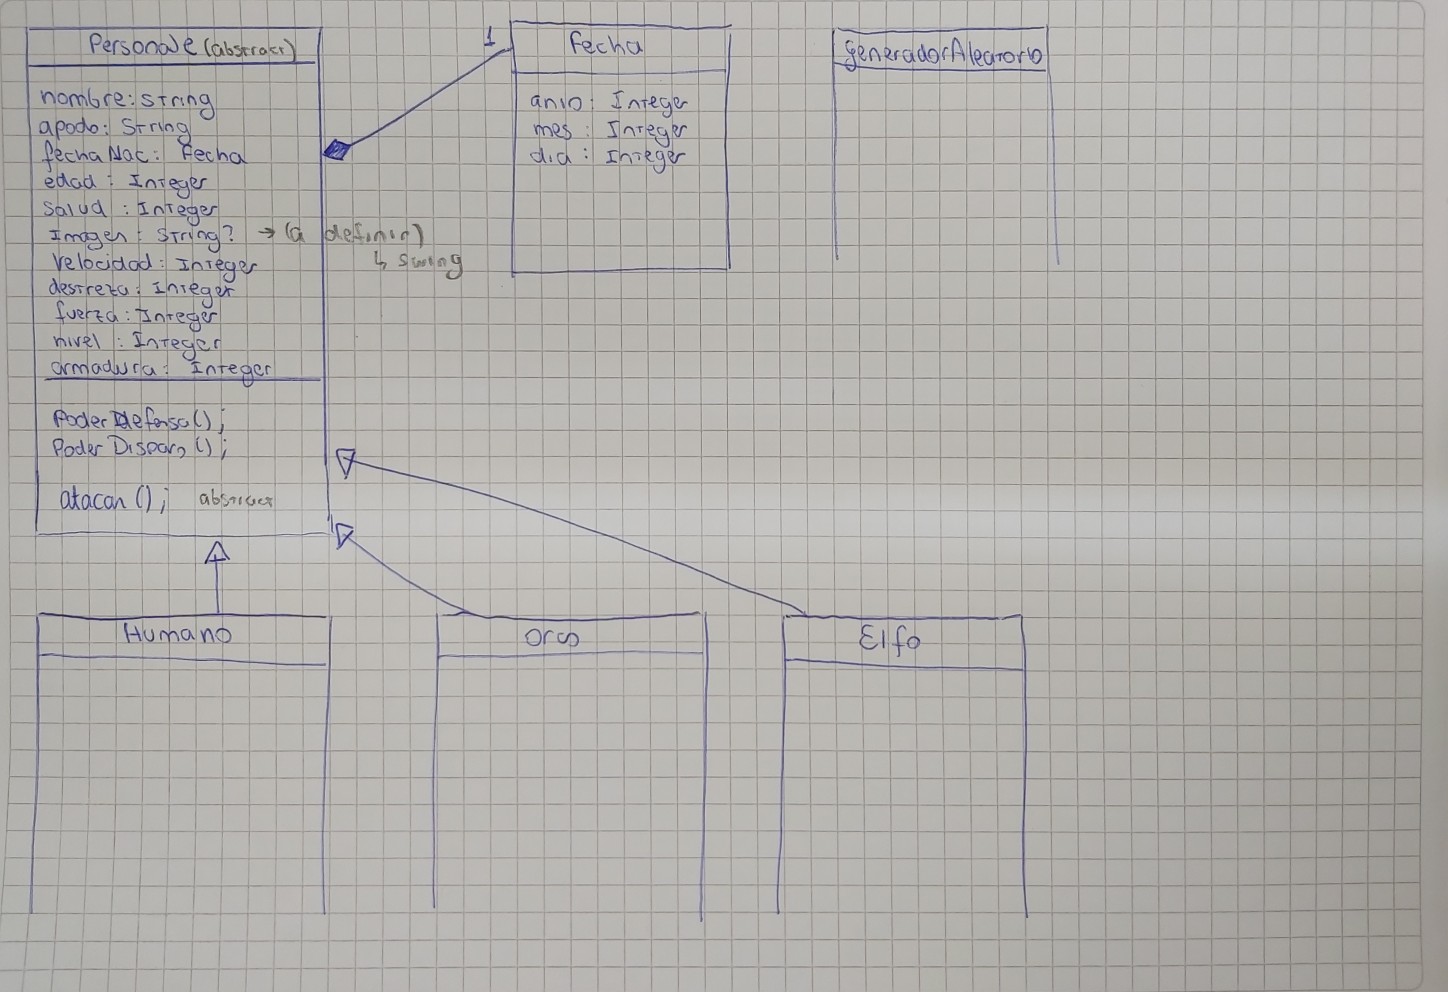 Personaje (abstract)
nombre: String
apodo: String
fechaNac: Fecha
edad: Integer
Salud: Integer
Imagen: String? → (a definir)
↳ Swing
Velocidad: Integer
destreza: Integer
fuerza: Integer
nivel: Integer
armadura: Integer
PoderDefensa();
PoderDisparo();
atacar(); abstract
1
Fecha
anio: Integer
mes: Integer
dia: Integer
generadorAleatorio
Humano
Orco
Elfo